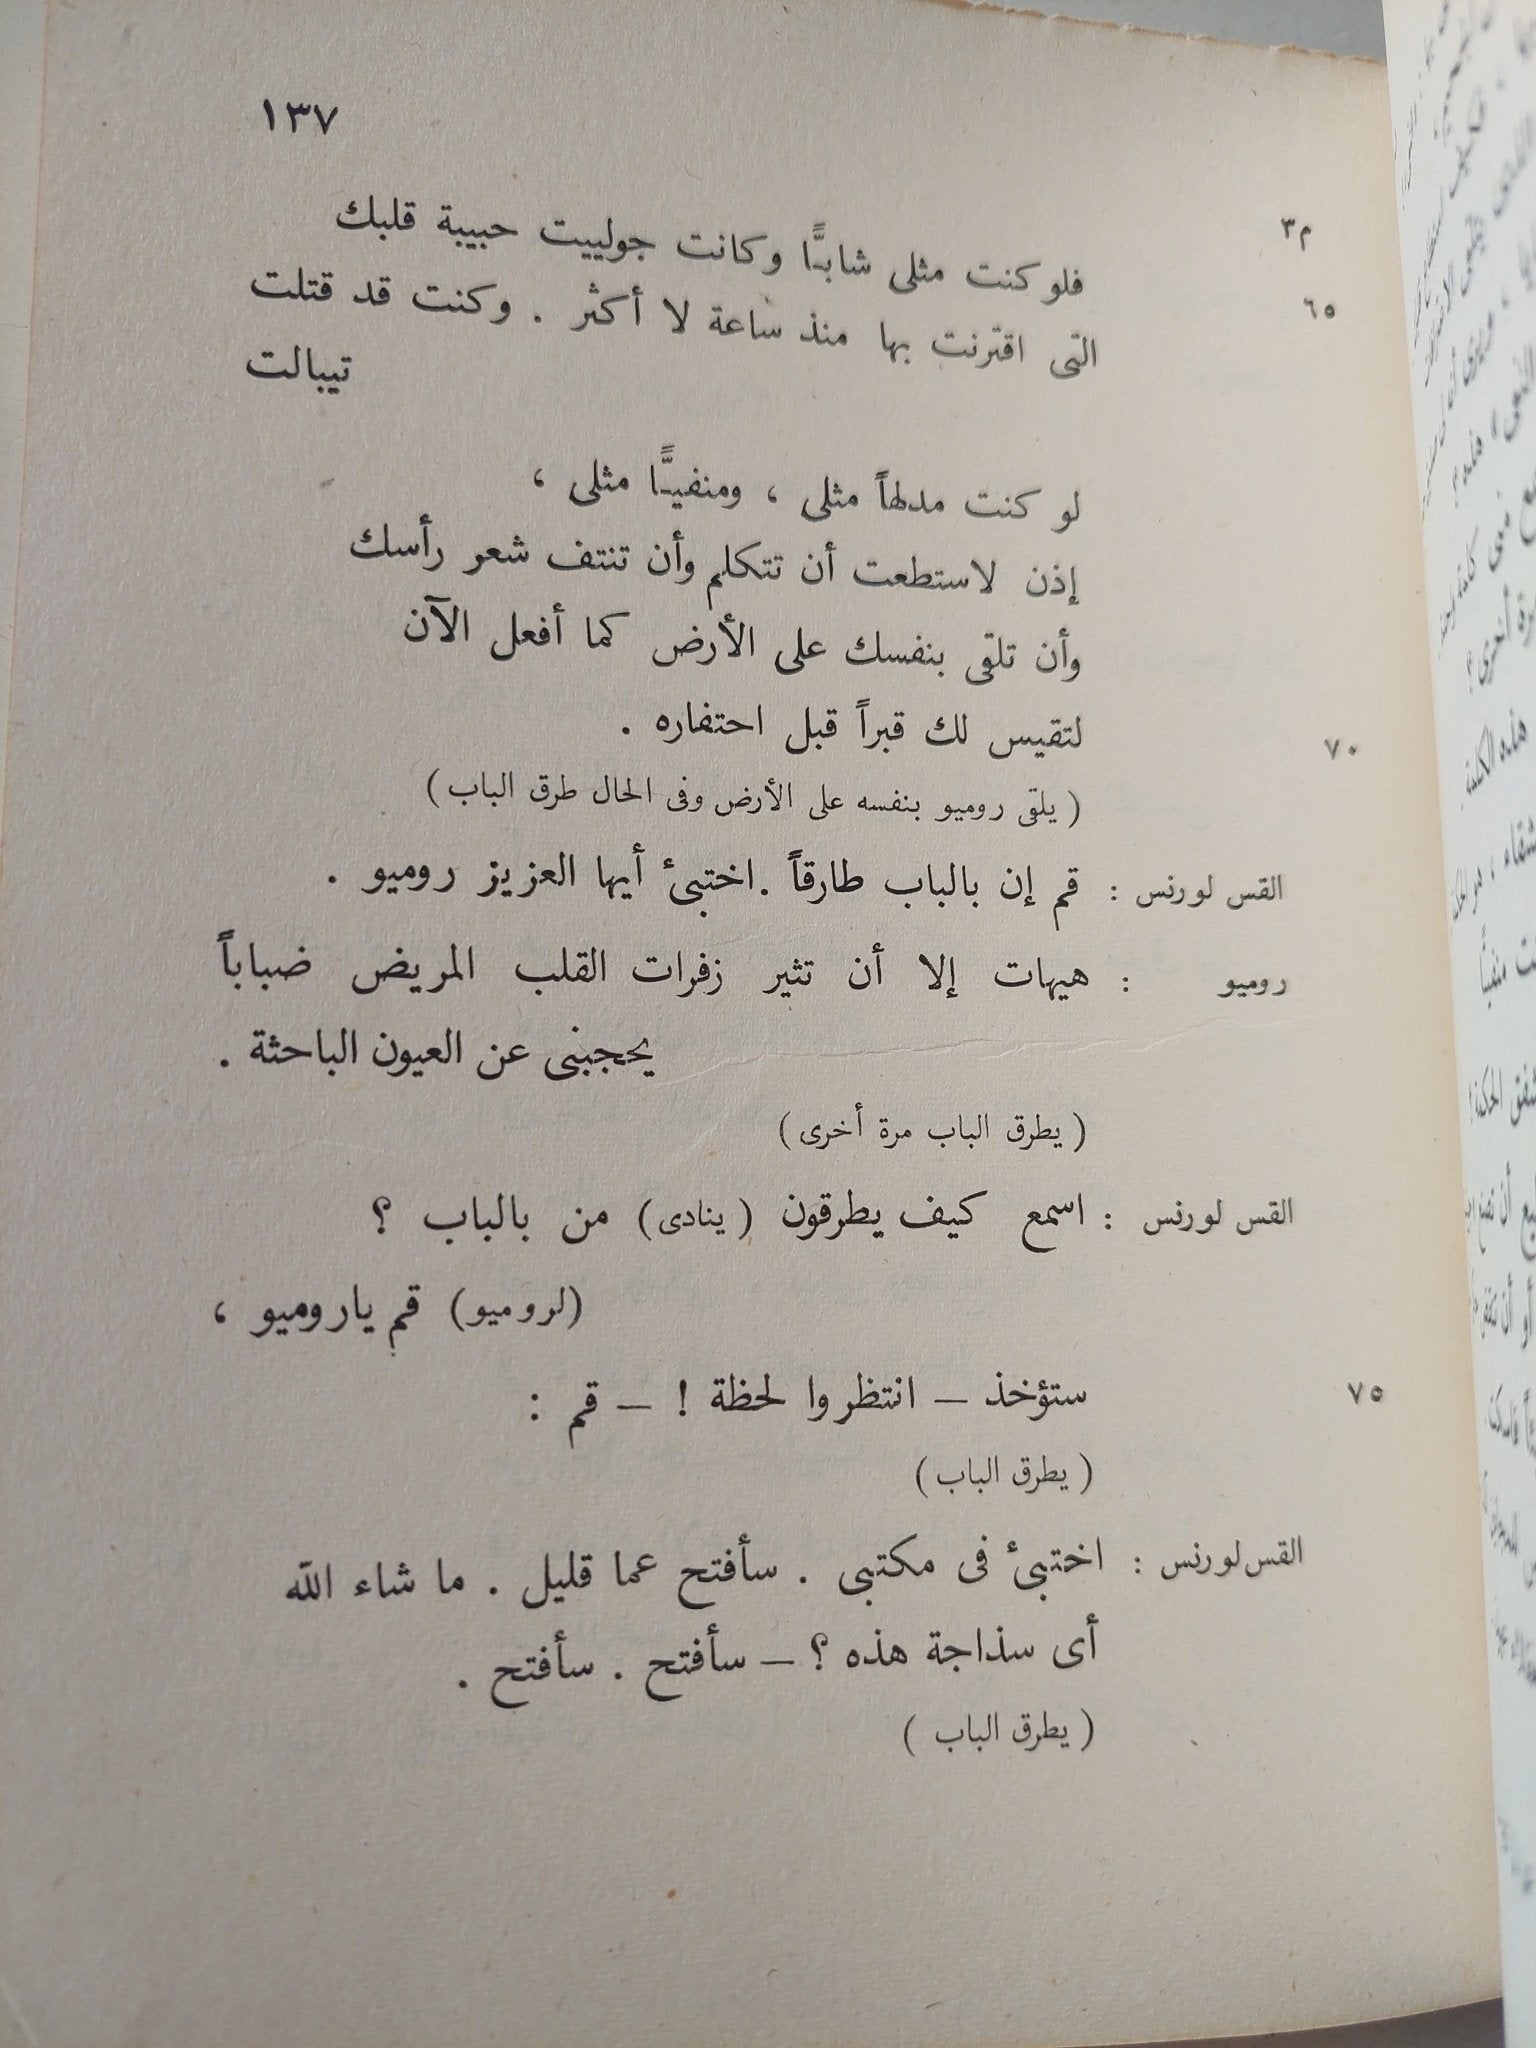 ١٣٧
م٣
فلو كنت مثلى شابًّا وكانت جولييت حبيبة قلبك
٦٥ التى اقترنت بها منذ ساعة لا أكثر . وكنت قد قتلت
تيبالت
لو كنت مدلهاً مثلى ، ومنفيًّا مثلى ،
إذن لاستطعت أن تتكلم وأن تنتف شعر رأسك
وأن تلقى بنفسك على الأرض كما أفعل الآن
٧٠ لتقيس لك قبراً قبل احتفاره .
( يلقى روميو بنفسه على الأرض وفى الحال طرق الباب )
القس لورنس : قم إن بالباب طارقاً . اختبئ أيها العزيز روميو .
روميو : هيهات إلا أن تثير زفرات القلب المريض ضباباً
يحجبنى عن العيون الباحثة .
( يطرق الباب مرة أخرى )
القس لورنس : اسمع كيف يطرقون ( ينادى ) من بالباب ؟
(لروميو) قم ياروميو ،
٧٥ ستؤخذ – انتظروا لحظة ! – قم :
( يطرق الباب )
القس لورنس : اختبئ فى مكتبى . سأفتح عما قليل . ما شاء الله
أى سذاجة هذه ؟ – سأفتح . سأفتح .
( يطرق الباب )